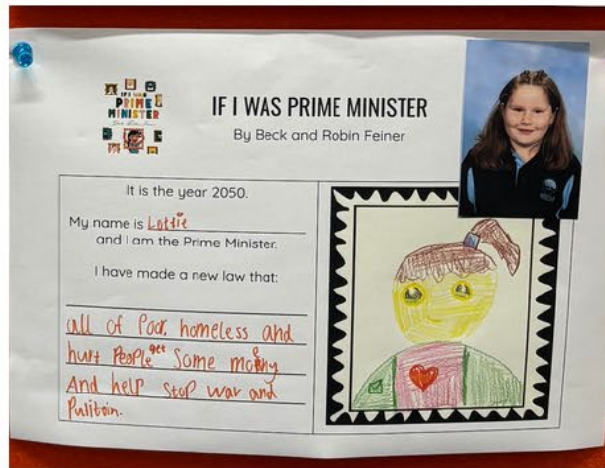 IF I WAS
PRIME
MINISTER
IF I WAS PRIME MINISTER
By Beck and Robin Feiner
It is the year 2050.
My name is Lottie
and I am the Prime Minister.
I have made a new law that:
all of Poor, homeless and
hurt People get Some mony
And help stop war and
Pulitoin.